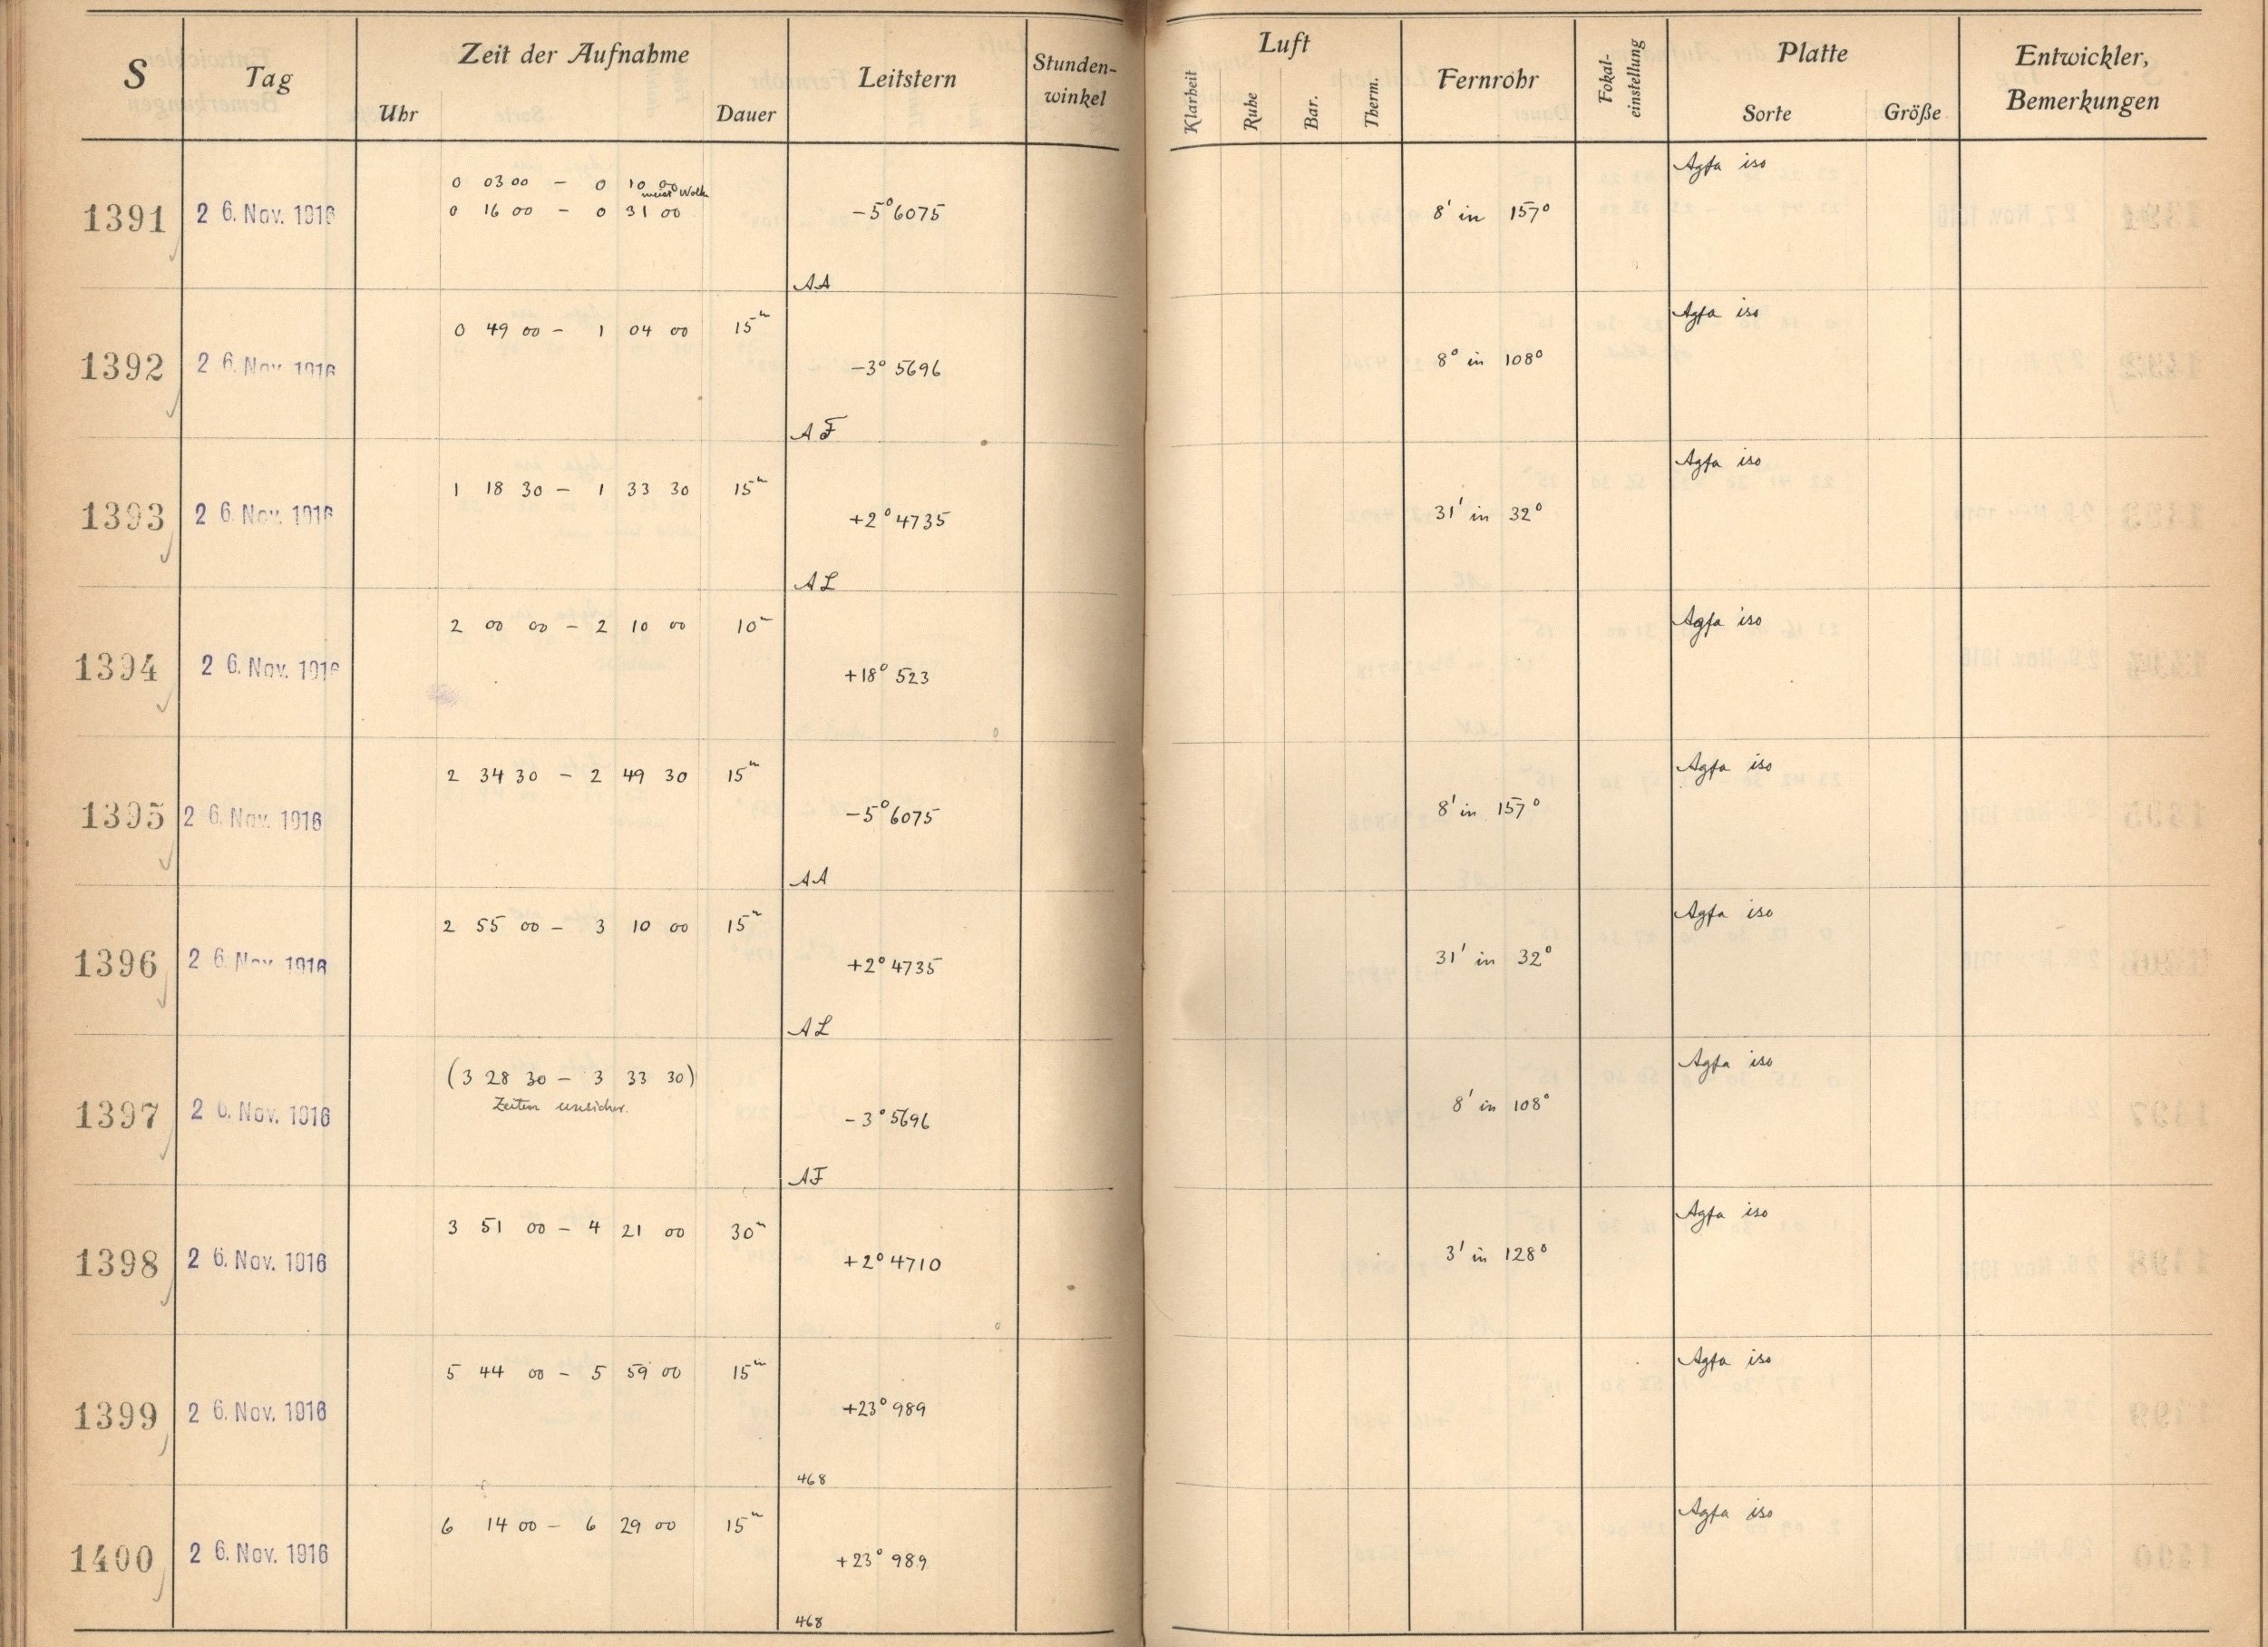 S Tag Zeit der Aufnahme Leitstern Stunden-winkel Luft Fernrohr Fokal-einstellung Platte Entwickler, Bemerkungen
Uhr Dauer Klarheit Ruhe Bar. Therm. Sorte Größe
0 03 00 - 0 10 00 Agfa iso
meist Wolk
1391 26. Nov. 1916 0 16 00 - 0 31 00 -5° 6075 8' in 157°
AA
0 49 00 - 1 04 00 15m Agfa iso
1392 26. Nov. 1916 -3° 5696 8° in 108°
AF
1 18 30 - 1 33 30 15m Agfa iso
1393 26. Nov. 1916 +2° 4735 31' in 32°
AL
2 00 00 - 2 10 00 10m Agfa iso
1394 26. Nov. 1916 +18° 523
2 34 30 - 2 49 30 15m Agfa iso
1395 26. Nov. 1916 -5° 6075 8' in 157°
AA
2 55 00 - 3 10 00 15m Agfa iso
1396 26. Nov. 1916 +2° 4735 31' in 32°
AL
(3 28 30 - 3 33 30) Agfa iso
Zeiten unsicher.
1397 26. Nov. 1916 -3° 5696 8' in 108°
AF
3 51 00 - 4 21 00 30m Agfa iso
1398 26. Nov. 1916 +2° 4710 3' in 128°
5 44 00 - 5 59 00 15m Agfa iso
1399 26. Nov. 1916 +23° 989
468
6 14 00 - 6 29 00 15m Agfa iso
1400 26. Nov. 1916 +23° 989
468